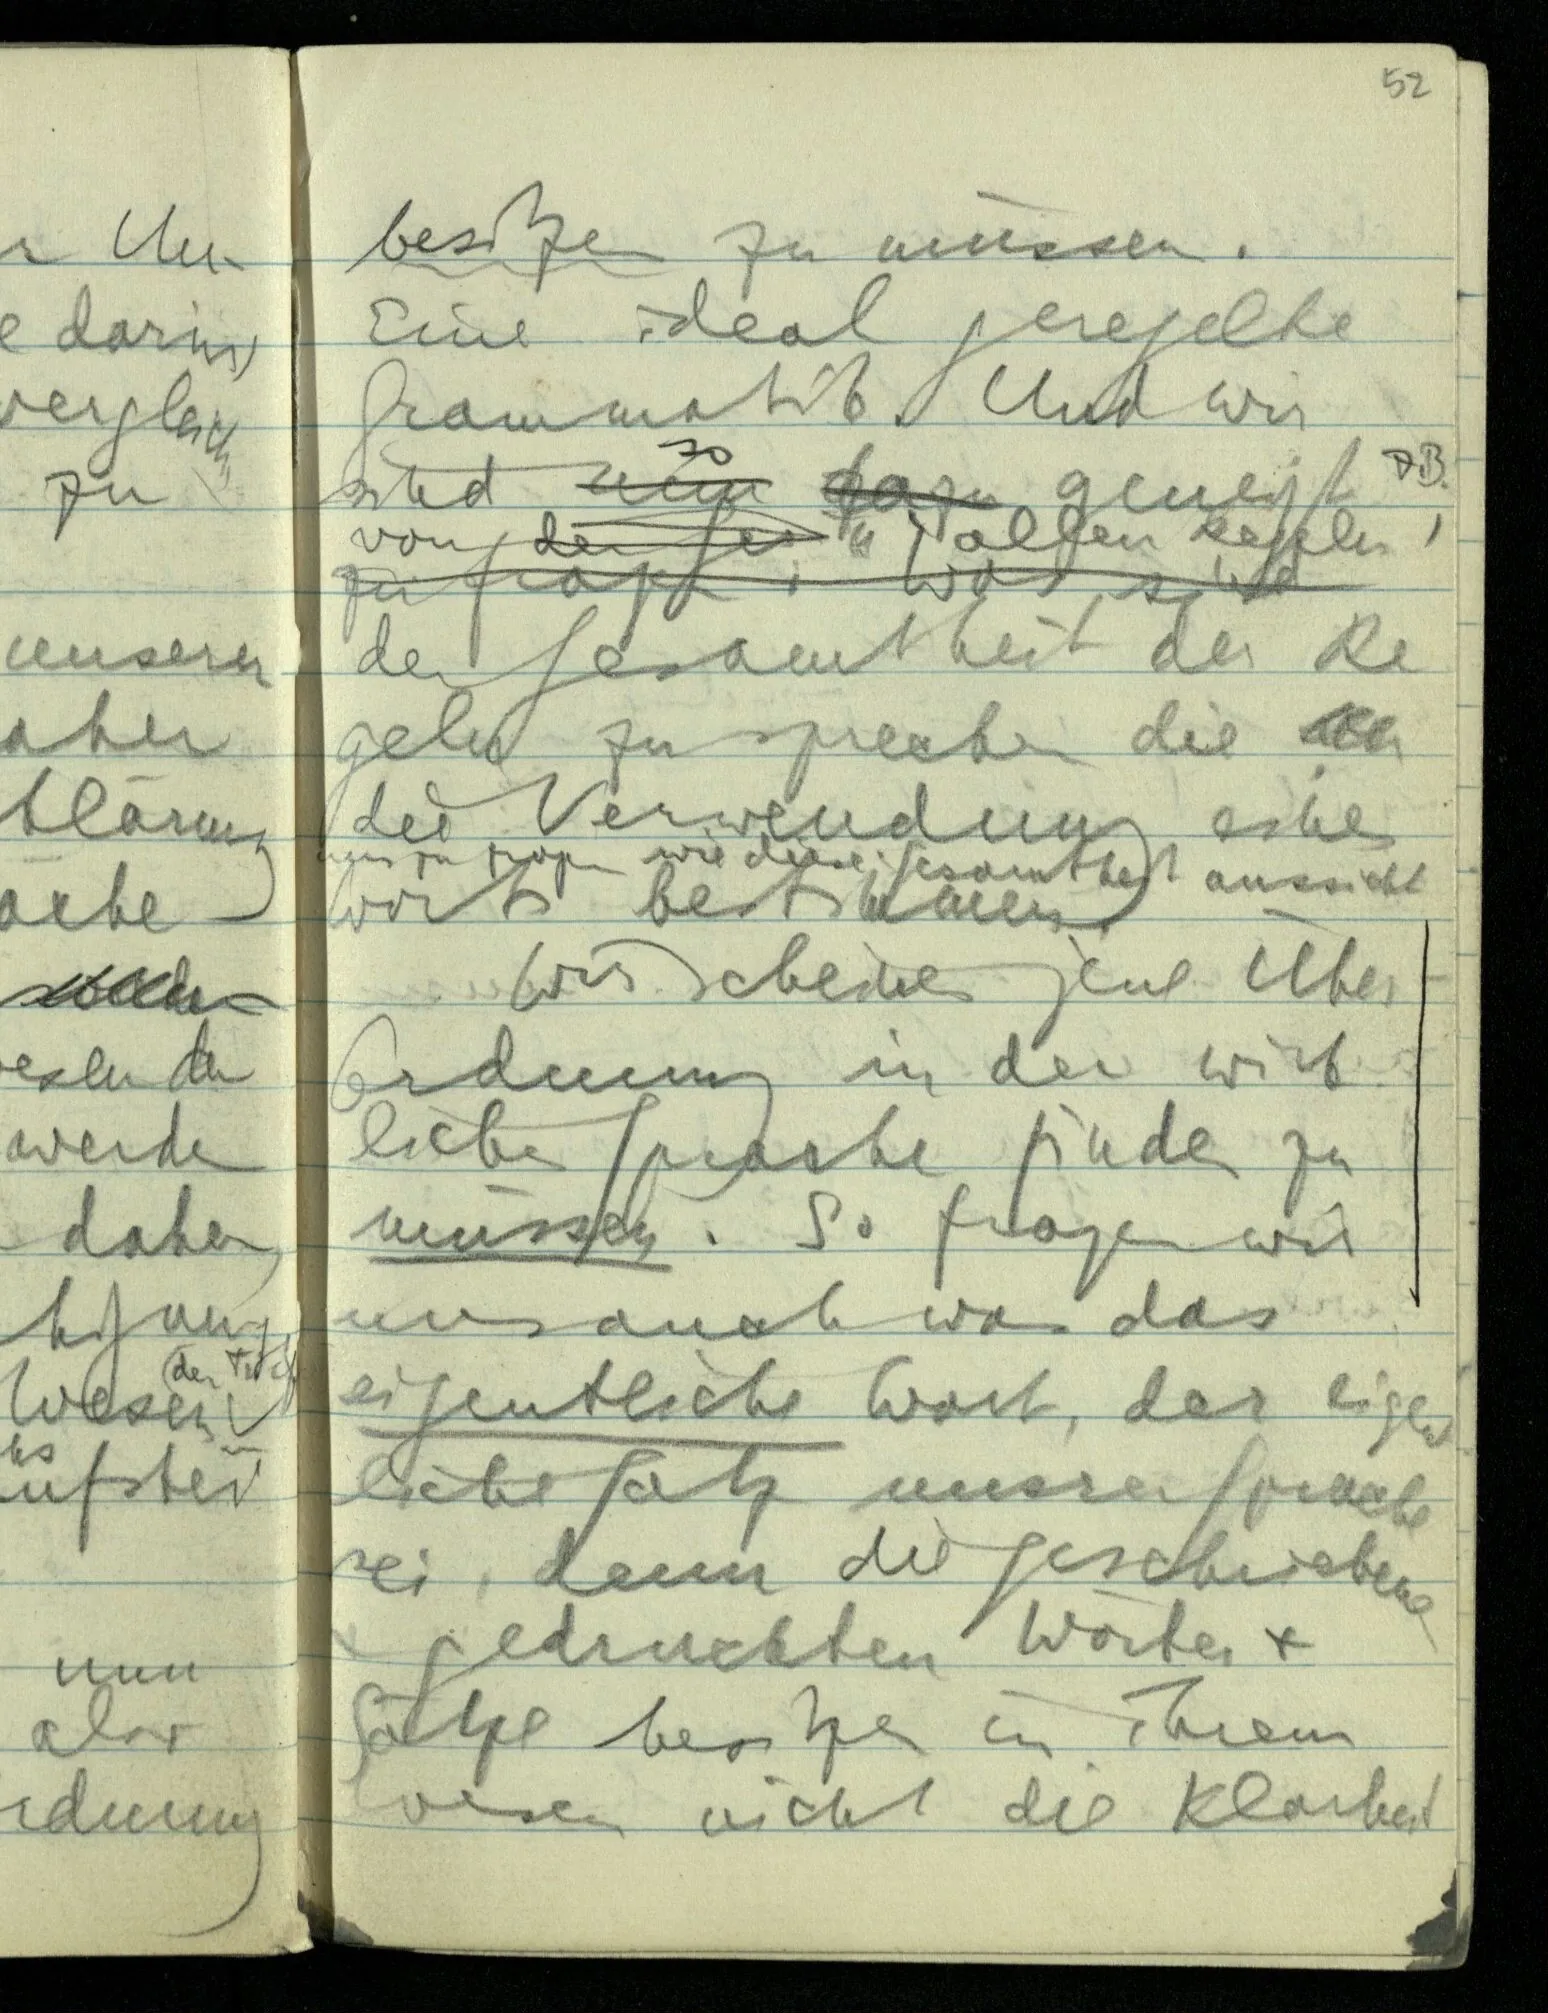 52
r Un-
e darin,
vergleich
zu
unserer
aber
klärung
ache
wesen der
werde
daher,
(der Tisch
Wesen
nun
also
rdnung
besitzen zu müssen.
Eine ideal geregelte
Grammatik. Und wir
so
sind nun dazu geneigt z.B.
von der Ge " allen Regeln,
zu fragen: Was sind
der Gesamtheit der Re
geln zu sprechen die
die Verwendung eines
uns zu fragen wie diese Gesamtheit aussieht
Worts bestimmen.
Wir scheinen jene Über-
Ordnung in der wirk
lichen Sprache finden zu
müssen. So fragen wir
uns auch was das
eigentliche Wort, der eigent
liche Satz unsrer Sprache
sei, denn die geschriebene
+ gedruckten Wörter +
Sätze besitzen in ihrem
Wesen nicht die Klarheit